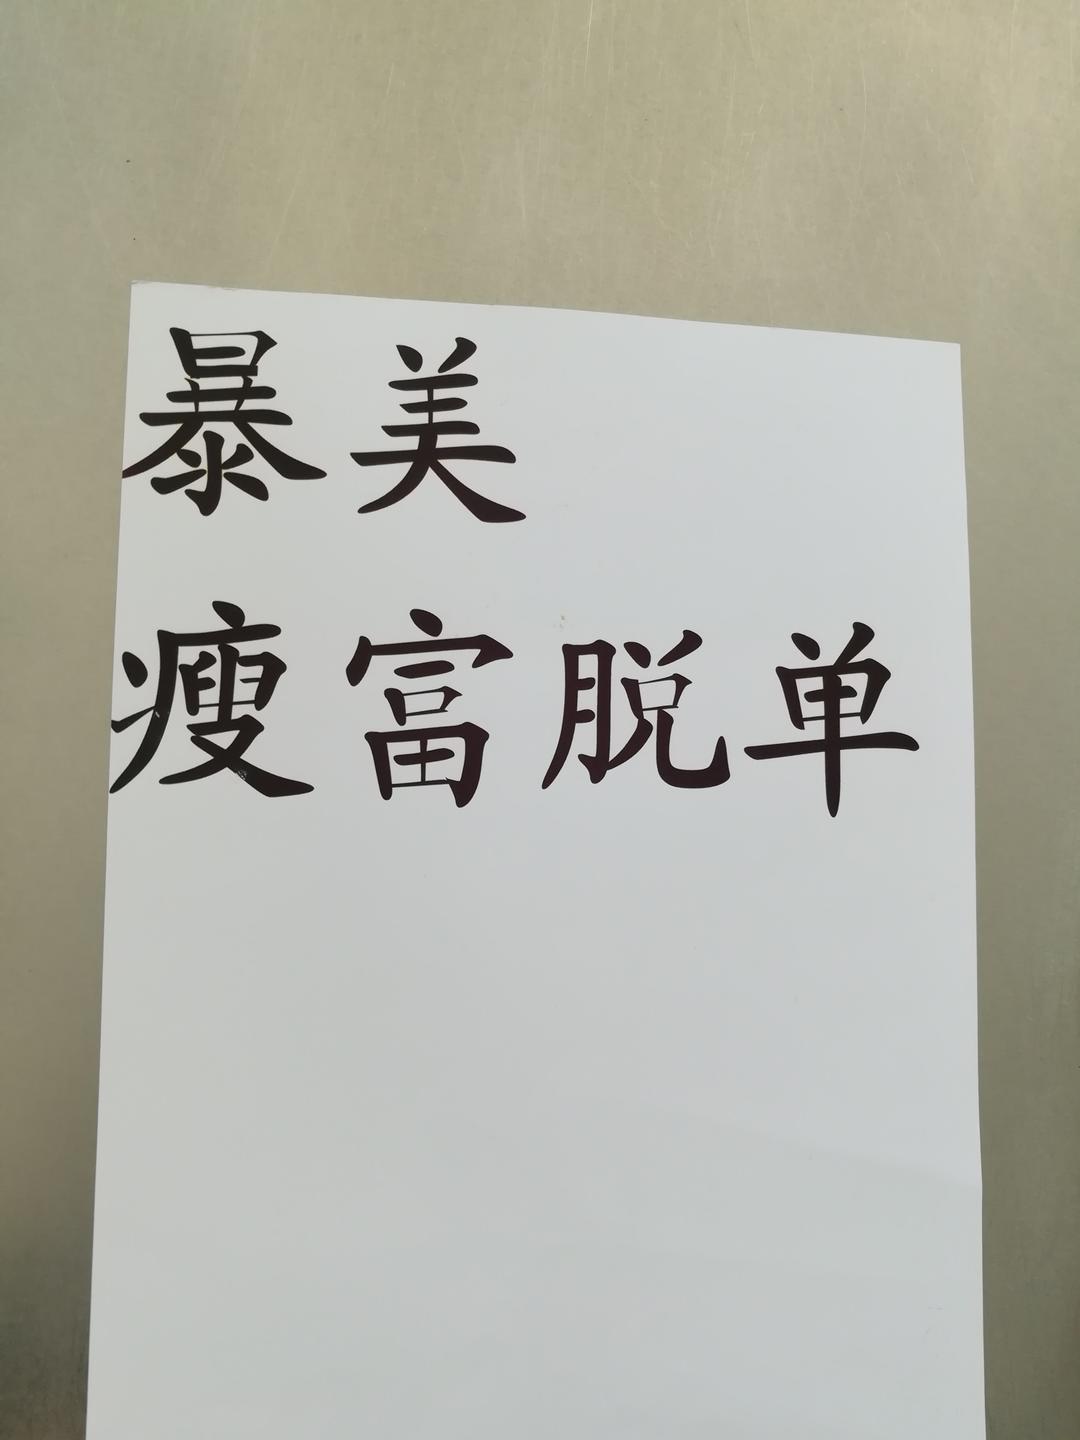 暴美
瘦富脱单